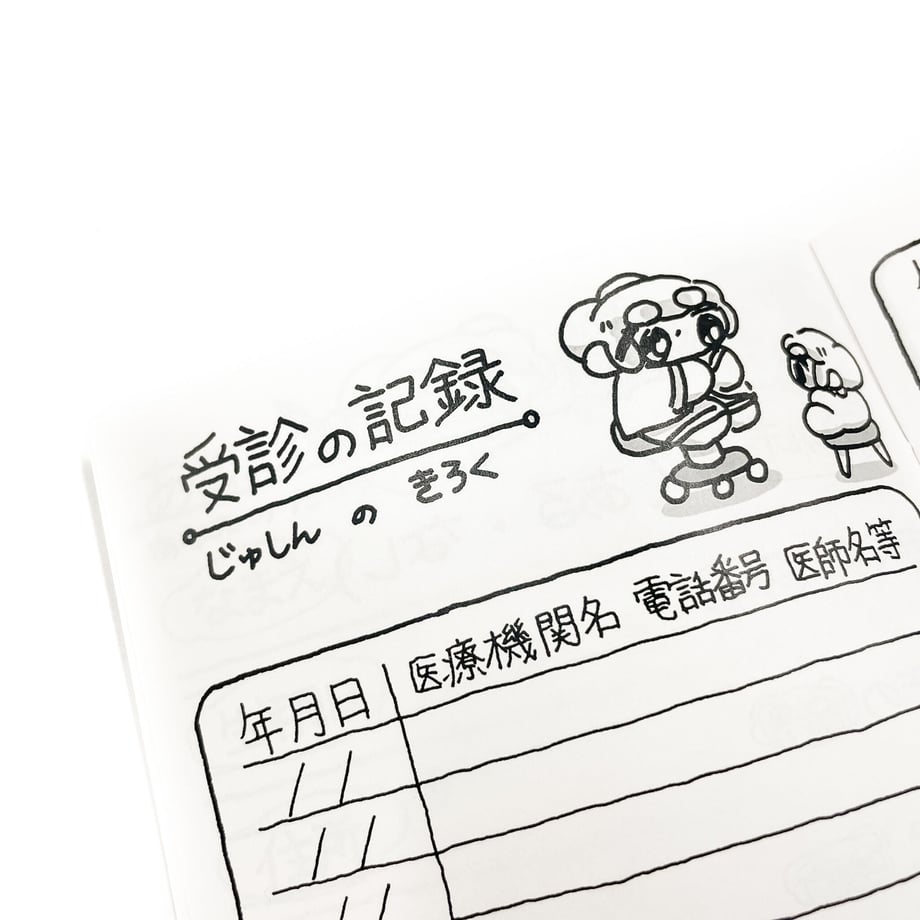 受診の記録
じゅしん の きろく
年月日 医療機関名 電話番号 医師名等
/ /
/ /
/ /